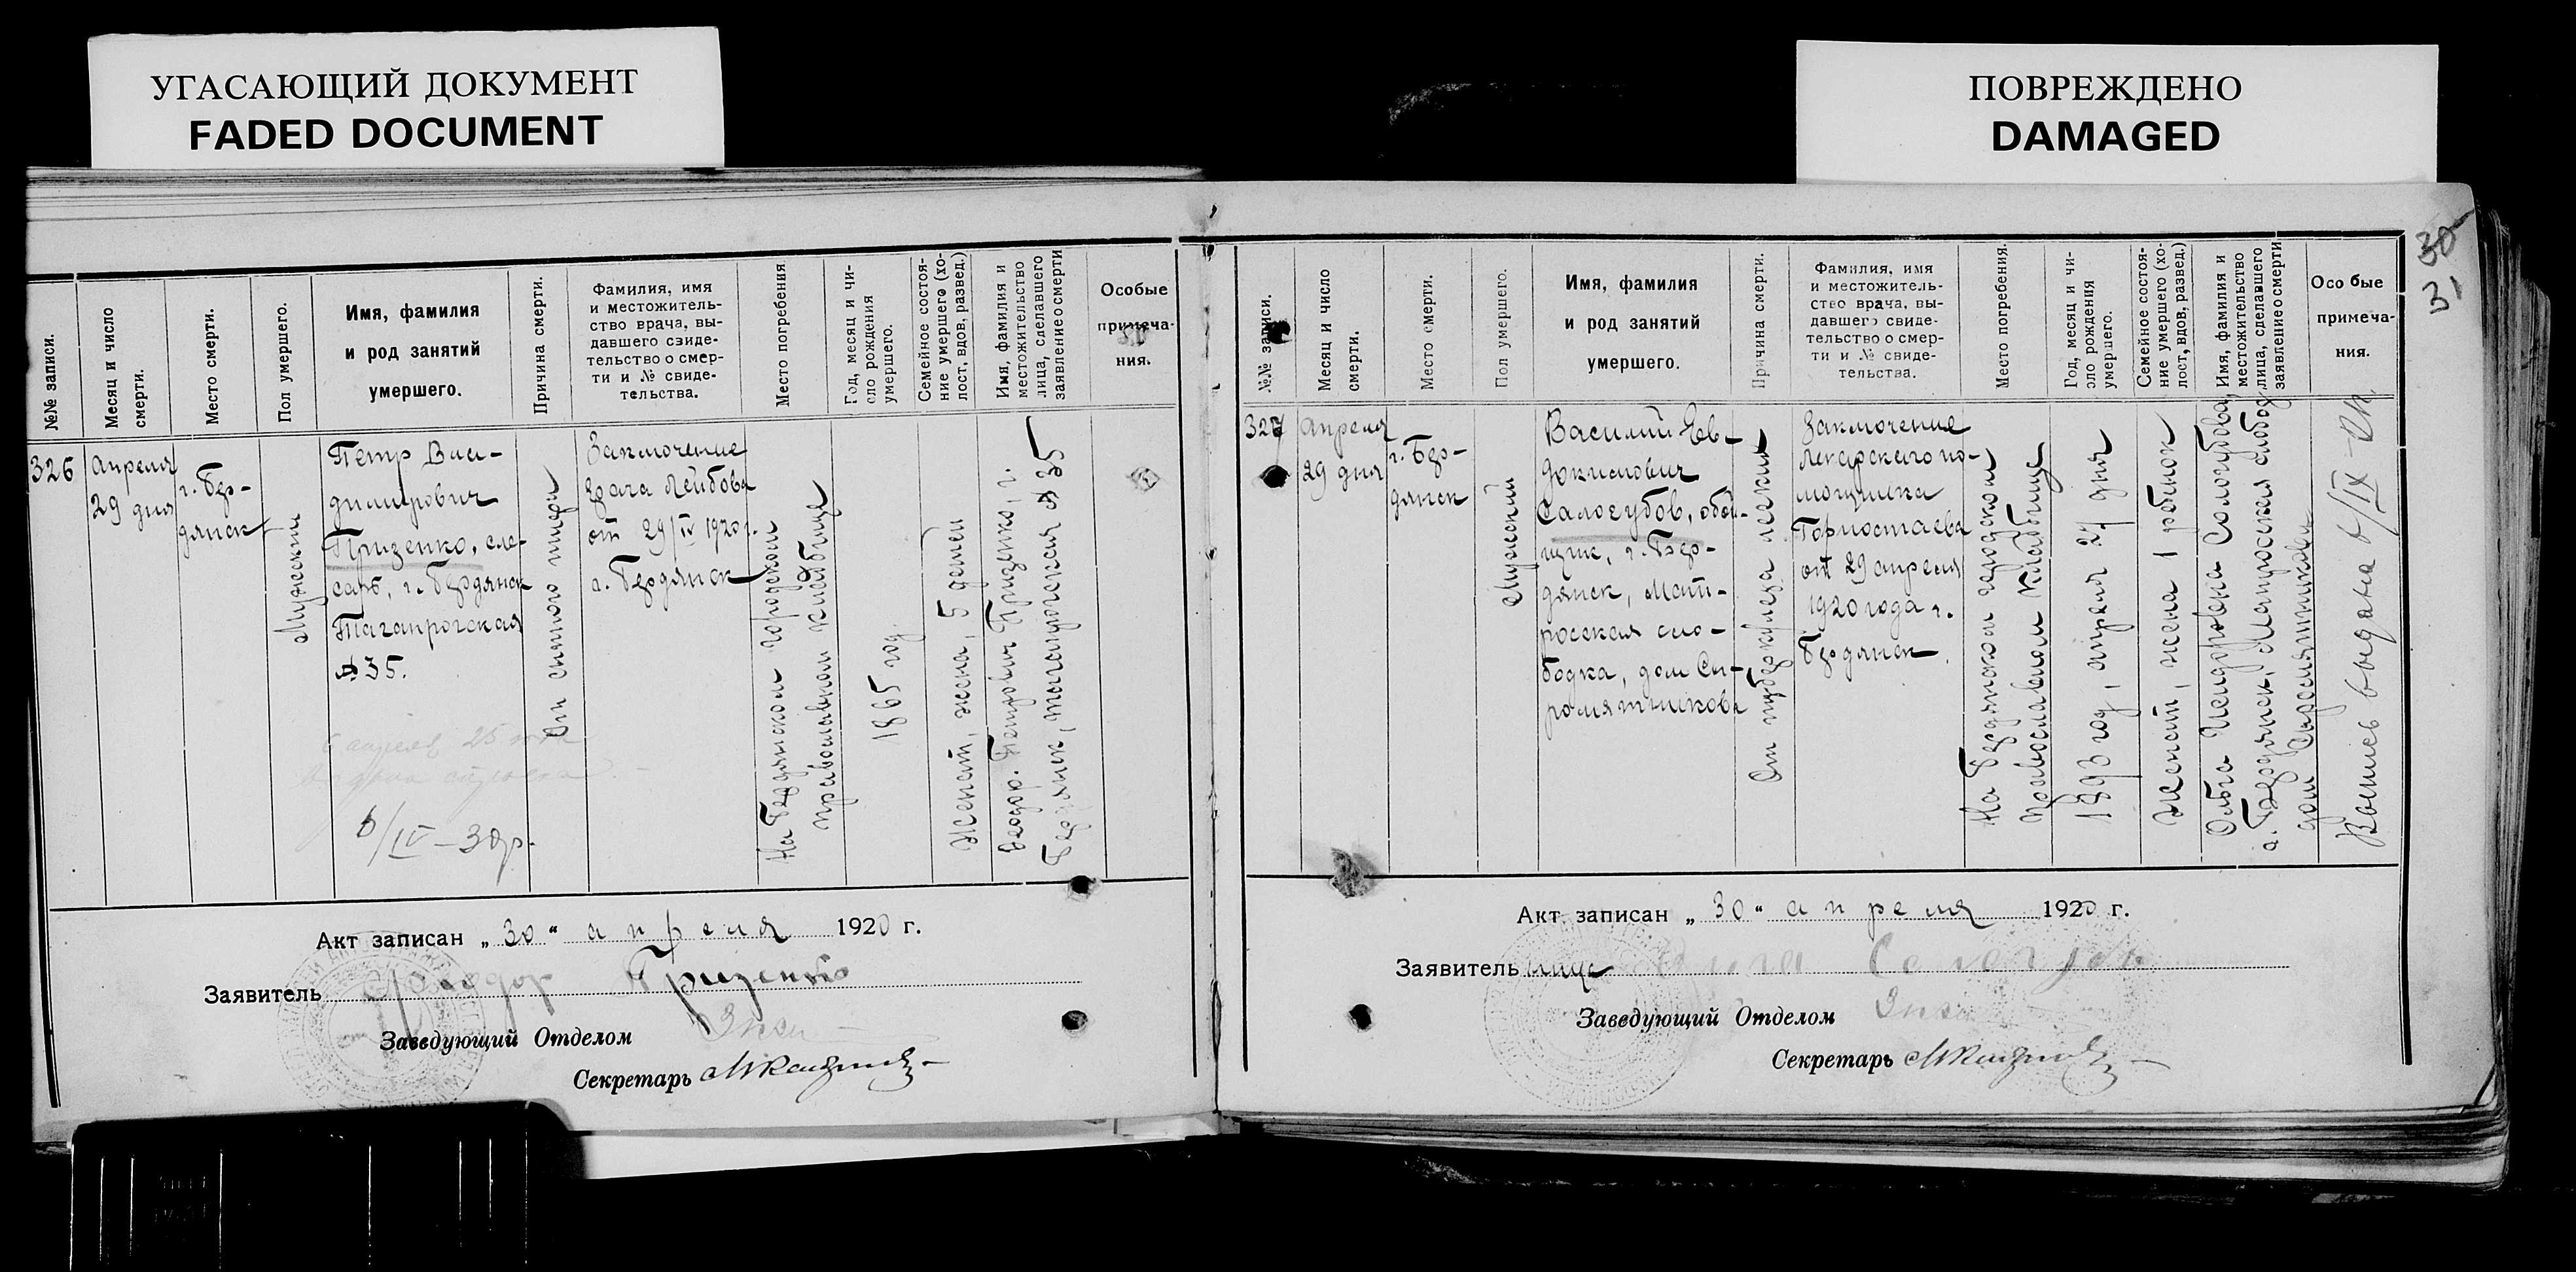 УГАСАЮЩИЙ ДОКУМЕНТ
FADED DOCUMENT
ПОВРЕЖДЕНО
DAMAGED
№№ записи.
Месяц и число
смерти.
Место смерти.
Пол умершего.
Имя, фамилия
и род занятий
умершего.
Причина смерти.
Фамилия, имя
и местожитель-
ство врача, вы-
давшего свиде-
тельство о смер-
ти и № свиде-
тельства.
Место погребения
Год, месяц и чи-
сло рождения
умершего.
Семейное состоя-
ние умершего (хо-
лост, вдов, развед.)
Имя, фамилия и
местожительство
лица, сделавшего
заявление о смерти
Особые
примеча-
ния.
326
апреля
29 дня
г. Бер-
дянск
Мужской
Петр Вла-
димирович
Гризенко, сле-
сарь, г. Бердянск
Таганрогская
№ 35.
6/IV – 30р.
От сыпного тифа
Заключение
врача Лейбова
от 29/IV 1920 г.
г. Бердянск
На Бердянском городском
православном кладбище
1865 год.
Женат, жена, 5 детей
Феодор Петрович Гризенко, г.
Бердянск, Таганрогская № 35
Акт записан „ 30 “ апреля 1920 г.
Заявитель Феодор Гризенко
Заведующий Отделом
Секретарь
30
31
№№ записи.
Месяц и число
смерти.
Место смерти.
Пол умершего.
Имя, фамилия
и род занятий
умершего.
Причина смерти.
Фамилия, имя
и местожитель-
ство врача, вы-
давшего свиде-
тельство о смер-
ти и № свиде-
тельства.
Место погребения.
Год, месяц и чи-
сло рождения
умершего.
Семейное состоя-
ние умершего (хо-
лост, вдов, развед.)
Имя, фамилия и
местожительство
лица, сделавшего
заявление о смерти
Особые
примеча-
ния.
327
апреля
29 дня
г. Бер-
дянск
Мужской
Василий Ев-
докимович
Салогубов, обой-
щик, г. Бер-
дянск, Мат-
росская сло-
бодка, дом Сы-
ромятникова
От туберкулеза легких
Заключение
лекарского по-
мощника
Горностаева
от 29 апреля
1920 года г.
Бердянск.
На Бердянском городском
православном кладбище
1893 год, апреля 27 дня
Женат, жена 1 ребенок
Ольга Сидоровна Сологубова,
г. Бердянск, Матросская слобод
дом Сыромятникова
Выпись выдана 6/IX –
Акт записан „ 30 “ апреля 1920 г.
Заявитель
Заведующий Отделом
Секретарь